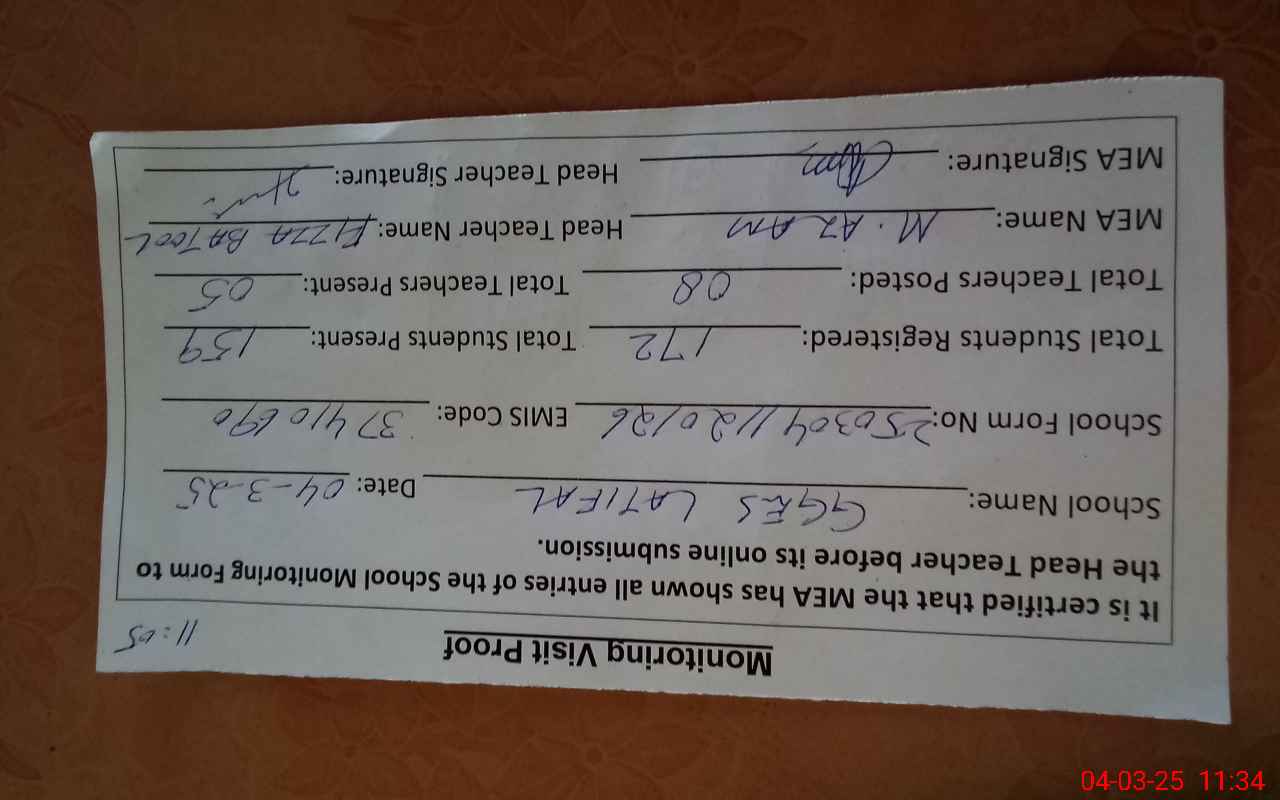 Monitoring Visit Proof
11:05
It is certified that the MEA has shown all entries of the School Monitoring Form to
the Head Teacher before its online submission.
School Name: GGES LATIFAL Date: 04-3-25
School Form No: 2503041120126 EMIS Code: 37410690
Total Students Registered: 172 Total Students Present: 159
Total Teachers Posted: 08 Total Teachers Present: 05
MEA Name: M. AZAM Head Teacher Name: FIZZA BATOOL
MEA Signature: Head Teacher Signature:
04-03-25 11:34